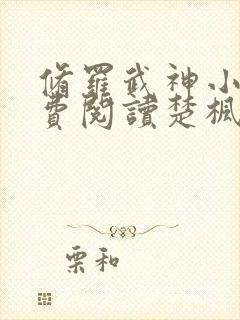 脩羅武神小
費閱讀楚楓
栗和